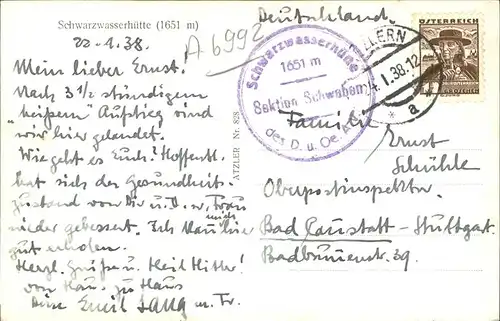 Schwarzwasserhütte (1651 m)
22.1.38.
A 6992
Mein lieber Ernst!
Nach 3 1/2 stündigem
"heißem" Aufstieg sind
wir hier gelandet.
Wie geht es Euch? Hoffentl.
hat sich der Gesundheits-
zustand von Dir u. D. w. Frau
wieder gebessert. Ich kann hier
mich
gut erholen.
Herzl. Grüße u. Heil Hitler!
von Haus zu Haus
Dein Emil Lang u. Fr.
ATZLER Nr. 828
Deutschland.
Schwarzwasserhütte
1651 m
Sektion Schwaben
des D. u. Oe. A.
ÖSTERREICH
1.38.12
a
Familie
Ernst
Schühle
Oberpostinspektor.
Bad Cannstatt - Stuttgart.
Badbrunnenstr. 39.